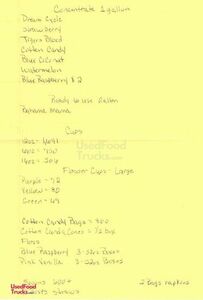 Concentrate 1 gallon
Dream Cycle
Strawberry
Tigers Blood
Cotton Candy
Blue Coconut
Watermelon
Blue Raspberry $ 2
Ready to Use Gallon
Bahama Mama
Cups
12oz -
16oz -
Flower Cups - Large
Purple - 72
Yellow - 80
Green - 49
Cotton Candy Bags =
Cotton Candy Cones = 1/2 box
Floss
Blue Raspberry 3 -
Pink Vanilla 3 -
600+
2 Bags napkins
straws
UsedFood
Trucks.com
UsedFood
Trucks.com